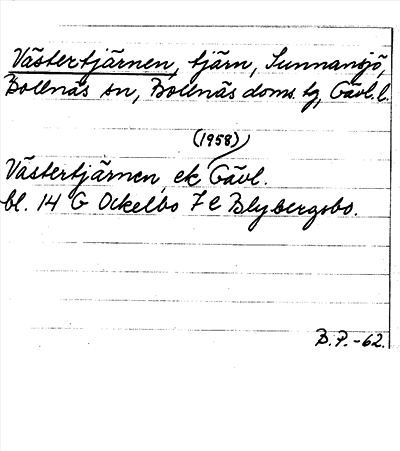 Västertjärnen, tjärn, Sunnansjö,
Bollnäs sn, Bollnäs doms. tg, Gävl. l.
(1958)
Västertjärnen, ek Gävl.
bl. 14 G Ockelbo 7 e Blybergsbo.
B.P.-62.